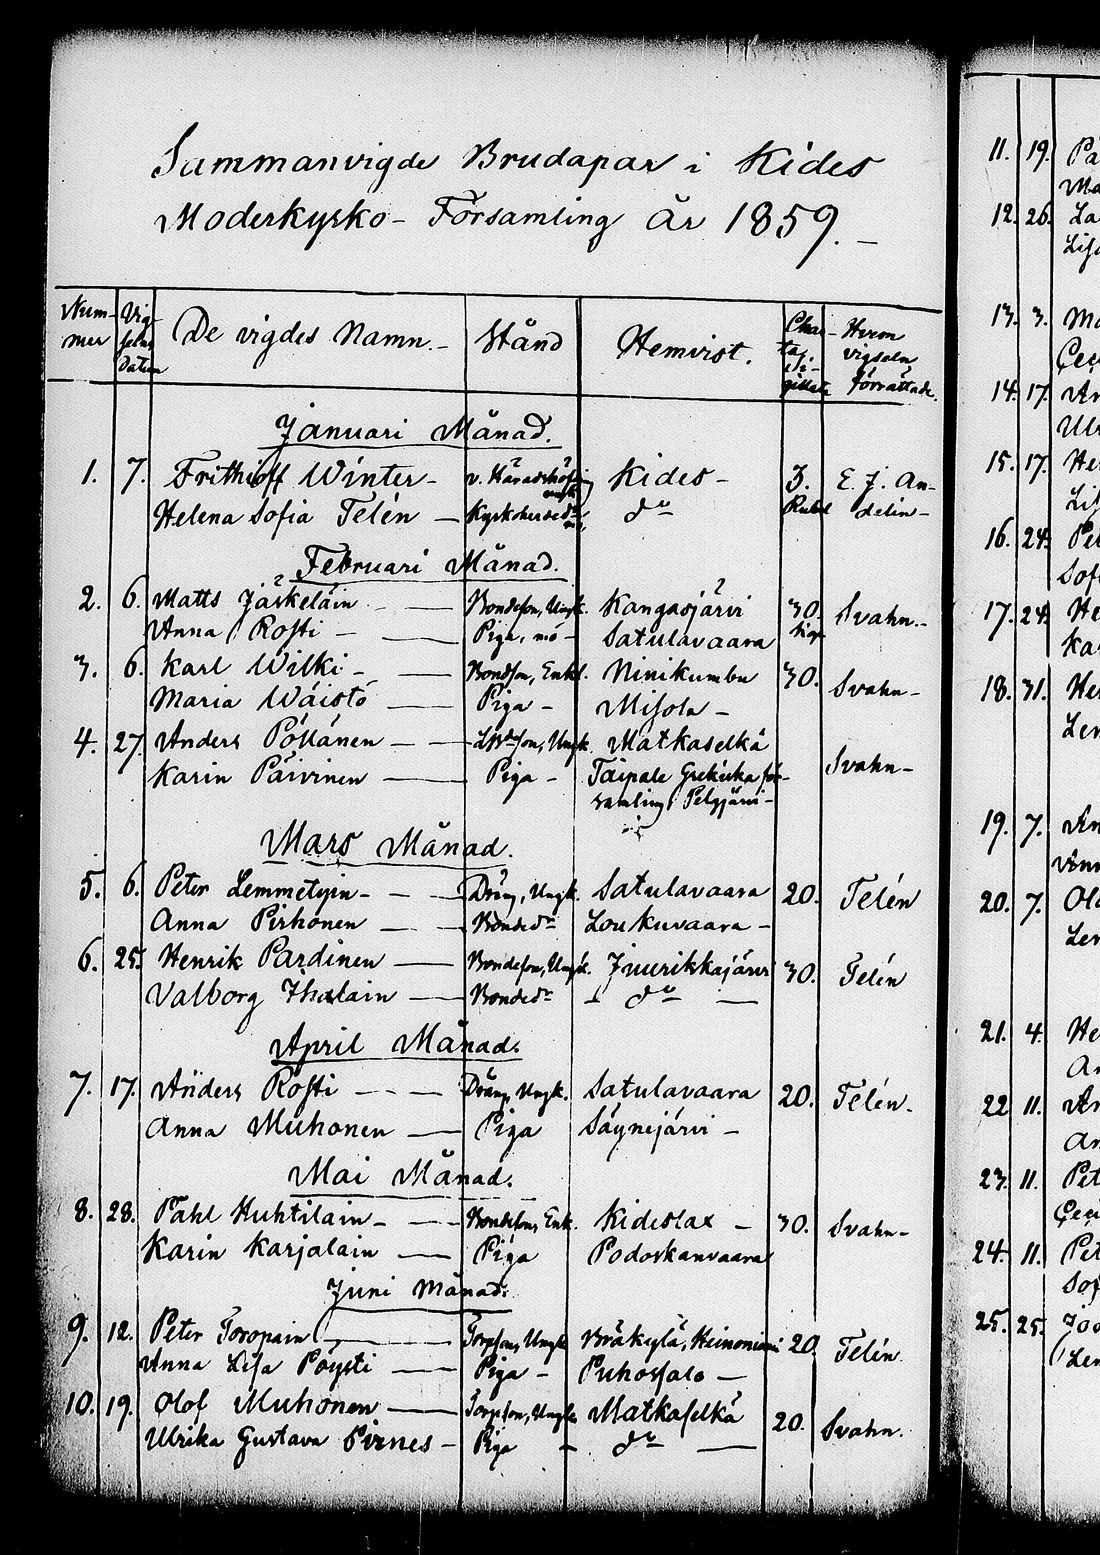 Sammanvigde Brudapar i Kides
Moderkyrko- Församling år 1859.-
Num-mer Vig-sels Datum De vigdes Namn.- Stånd Hemvist. Char-tæ. gillate Hvem vigseln förrättade.
Januari Månad.
1. 7. Frithioff Winter- v. Häradshöfding Kides- 3. E. J. An-
Helena Sofia Telén - Kyrkoherdedr do Rubel delin-
Februari Månad.
2. 6. Matts Jäskeläin - - Bondeson, Ungk. Kangasjärvi 30. Svahn.-
Anna Rosti - - Piga, mö- Satulavaara Kop
3. 6. Karl Wilki- - Bondson, Enkl. Niinikumbu 30. Svahn-
Maria Wäistö - Piga - Misola -
4. 27. Anders Pöllänen - - Ungk. Matkaselkä Svahn-
Karin Päivinen - Piga - Taipale Grekiska för-
samling i Pelgjärvi-
Mars Månad.
5. 6. Peter Lemmetyin- - - Dräng, Ungk. Satulavaara 20. Telén
Anna Pirhonen - - Bondedr Loukuvaara -
6. 25. Henrik Pardinen - Bondeson, Ungk. Juurikkajärvi 30. Telén
Valborg Ihalain - Bondedr - do -
April Månad.
7. 17. Anders Rosti - - - Dräng, Ungk. Satulavaara 20. Telén.
Anna Muhonen - Piga Säynejärvi -
Mai Månad.
8. 28. Påhl Huhtilain- - - Bondeson, Enk. Kideslax - 30. Svahn-
Karin Karjalain - Piga Podoskanvaara
Juni Månad.
9. 12. Peter Toropain - Torpson, Ungk Bräkylä, Heinoniemi 20 Telén.
Anna Lisa Pöysti - Piga - Puhossalo -
10. 19. Olof Muhonen - Torpson, Ungk Matkaselkä 20. Svahn.
Ulrika Gustava Pirnes - Piga - do -
11. 19. Pä
Ma
12. 26. La
Lis
13. 3. Ma
Ceci
14. 17. An
Ulr
15. 17. He
Lis
16. 24. Pe
Sof
17. 24. He
Kar
18. 31. He
Len
19. 7. An
Ann
20. 7. Olo
Len
21. 4. He
An
22 11. An
An
23. 11. Pet
Ceci
24. 11. Pet
Sof
25. 25. Joh
Len